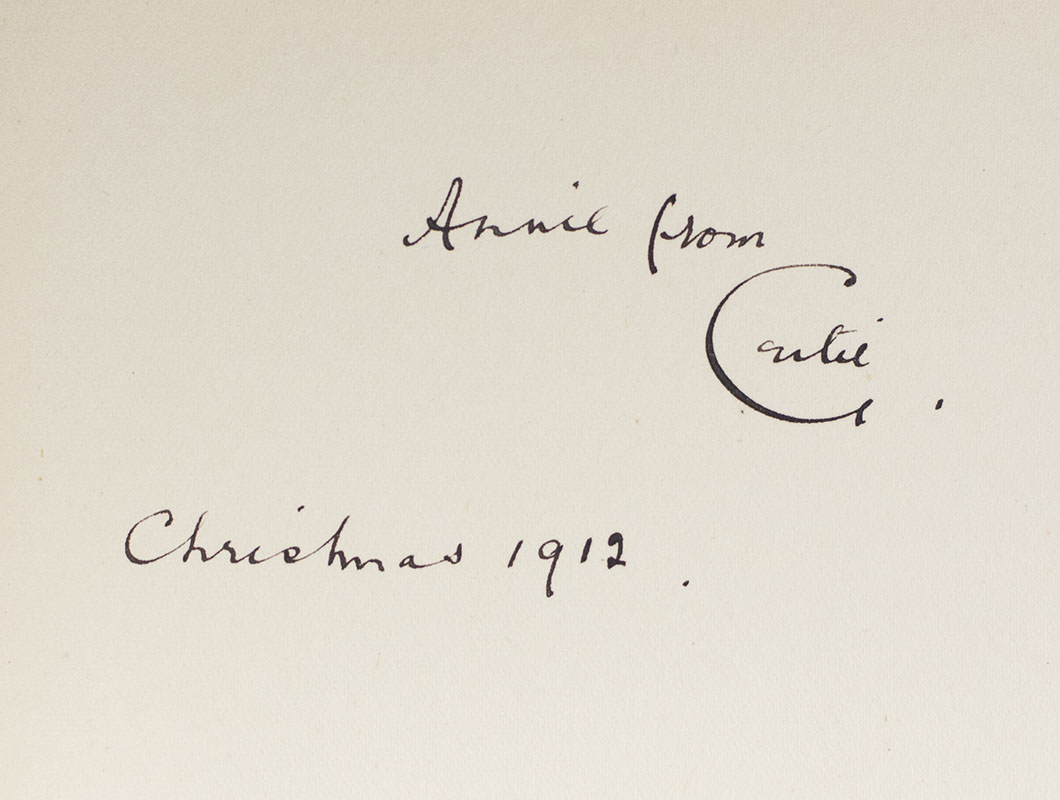 Annie from
Cartie.
Christmas 1912.